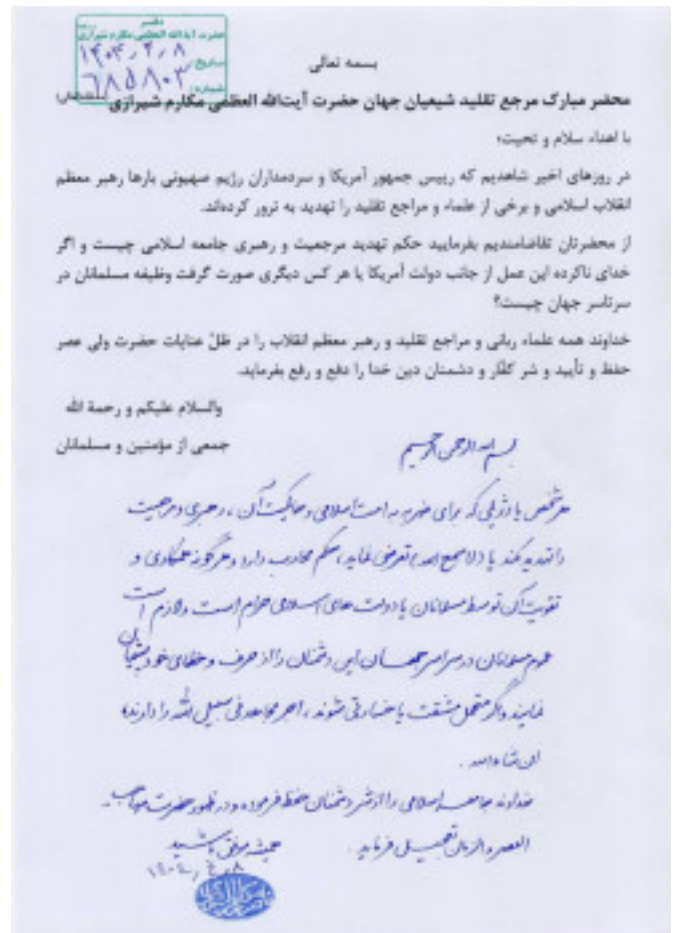 دفتر
حضرت آیةالله العظمی مکارم شیرازی
تاریخ: ۱۴۰۴٫۴٫۸
شماره: ۶۸۵۸۰۳
بسمه تعالی
محضر مبارک مرجع تقلید شیعیان جهان حضرت آیت‌الله العظمی مکارم شیرازی
با اهداء سلام و تحیت؛
در روزهای اخیر شاهدیم که رییس جمهور آمریکا و سردمداران رژیم صهیونی بارها رهبر معظم
انقلاب اسلامی و برخی از علماء و مراجع تقلید را تهدید به ترور کرده‌اند.
از محضرتان تقاضامندیم بفرمایید حکم تهدید مرجعیت و رهبری جامعه اسلامی چیست و اگر
خدای ناکرده این عمل از جانب دولت آمریکا یا هر کس دیگری صورت گرفت وظیفه مسلمانان در
سرتاسر جهان چیست؟
خداوند همه علماء ربانی و مراجع تقلید و رهبر معظم انقلاب را در ظلّ عنایات حضرت ولی عصر
حفظ و تأیید و شر کفّار و دشمنان دین خدا را دفع و رفع بفرماید.
والسلام علیکم و رحمة الله
جمعی از مؤمنین و مسلمانان
بسم الله الرحمن الرحیم
هر شخص یا رژیمی که برای ضربه به امت اسلامی و حاکمیت آن، رهبری و مرجعیت
را تهدید کند یا (لا سمح الله) تعرضی نماید، حکم محارب دارد و هرگونه همکاری و
تقویت آن توسط مسلمانان یا دولت های اسلامی حرام است و لازم است
عموم مسلمانان در سراسر جهان این دشمنان را از حرف و خطای خود پشیمان
نمایند و اگر متحمل مشقت یا خسارتی شوند، اجر مجاهد فی سبیل الله را دارند،
ان شاءالله.
خداوند جامعه اسلامی را از شر دشمنان حفظ فرموده و در ظهور حضرت صاحب
العصر و الزمان تعجیل فرماید.
همیشه موفق باشید
۱۴۰۴٫۴٫۸